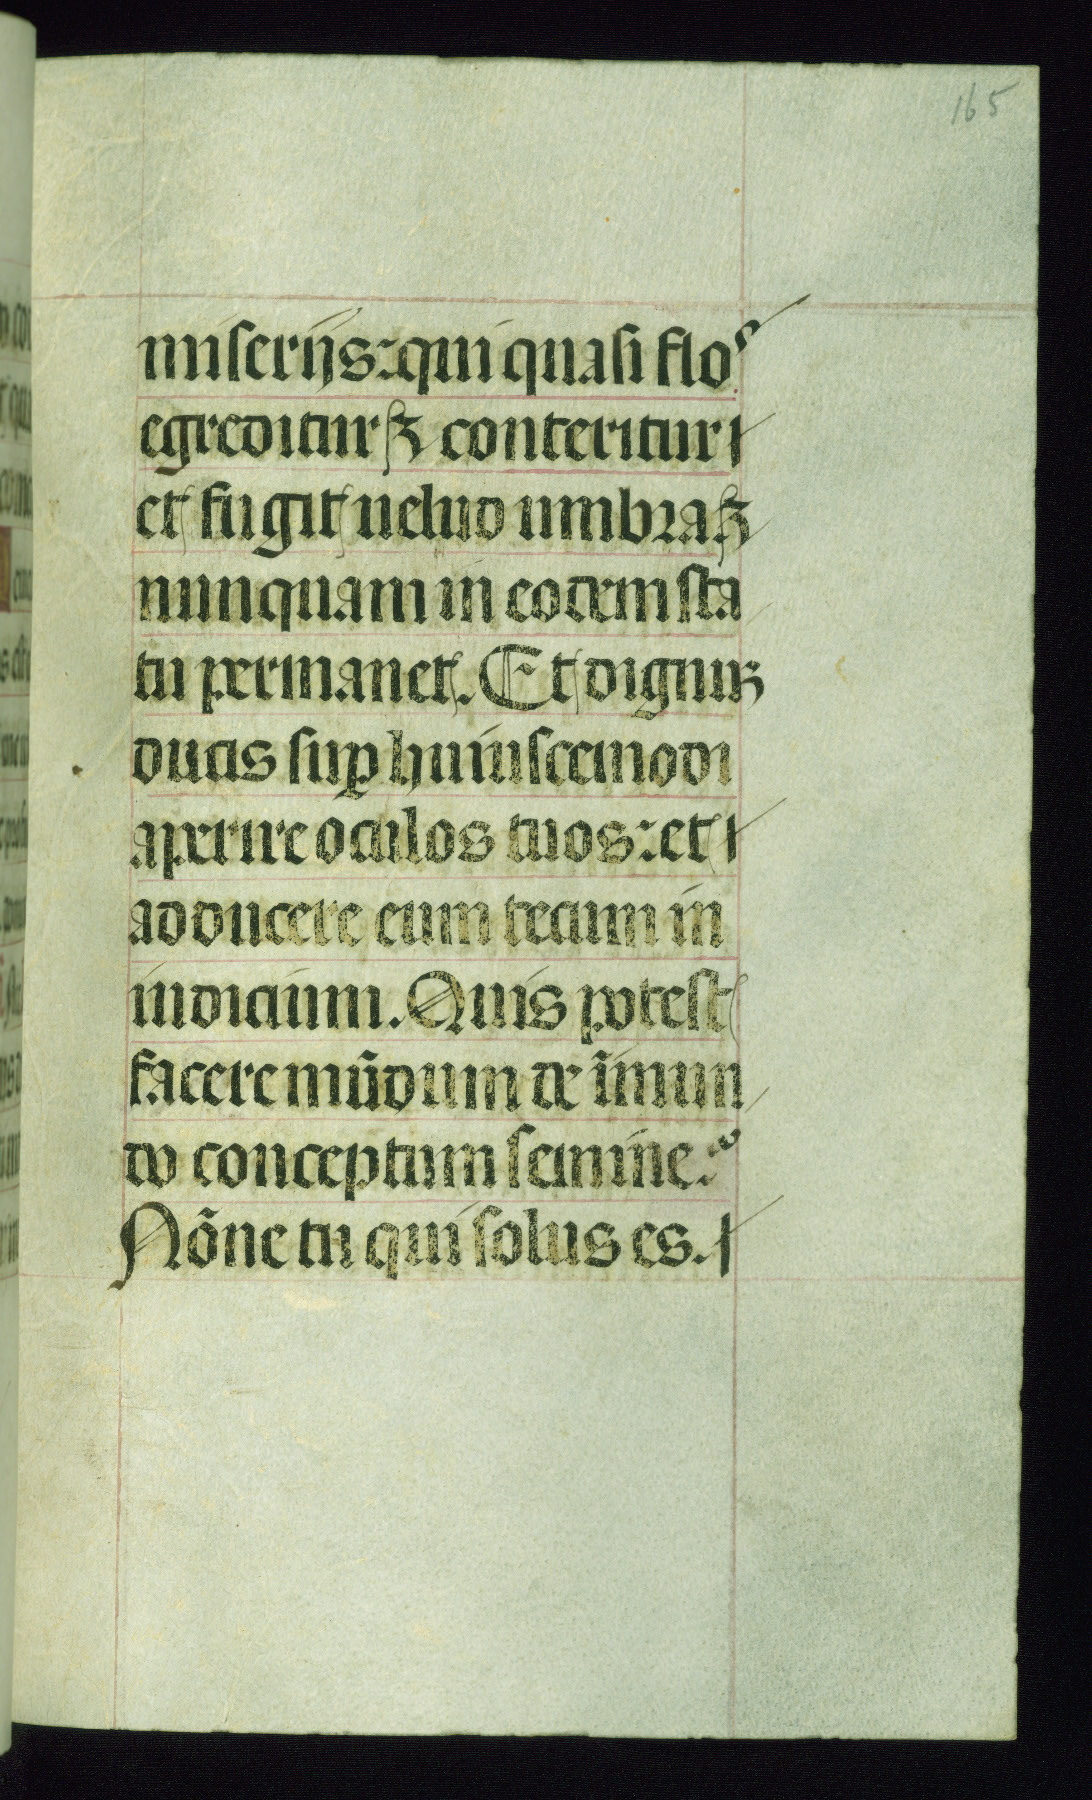 165
miserijs: qui quasi flos
egreditur ⁊ conteritur
et fugit uelud umbra ⁊
nunquam in eodem sta
tu permanet. Et dignum
ducis suꝑ huiuscemodi
aperire oculos tuos: et
adducere eum tecum in
iudicium. Quis potest
facere mūdum de īmun
do conceptum semine:
Nōne tu qui solus es.